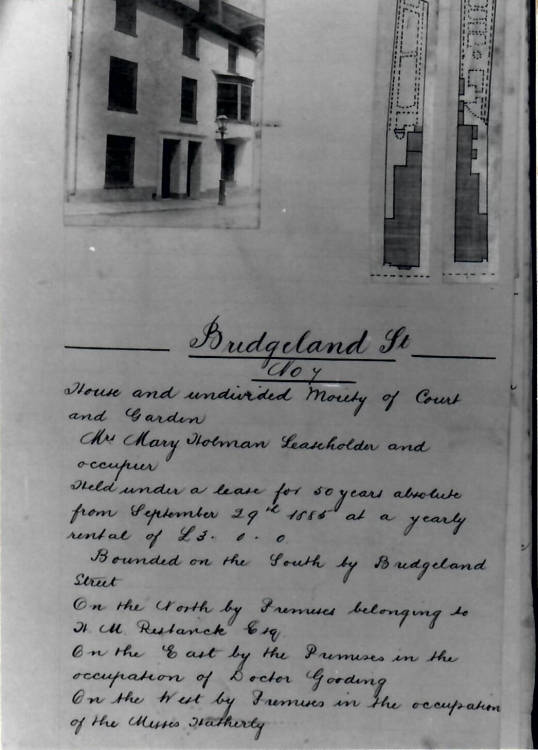 Bridgeland St
No 7
House and undivided Moiety of Court
and Garden
Mrs Mary Holman Leaseholder and
occupier
Held under a lease for 50 years absolute
from September 29th 1885 at a yearly
rental of £3. 0. 0.
Bounded on the South by Bridgeland
Street
On the North by Premises belonging to
H. M. Restarick Esq
On the East by the Premises in the
occupation of Doctor Gooding
On the West by Premises in the occupation
of the Misses Hatherly